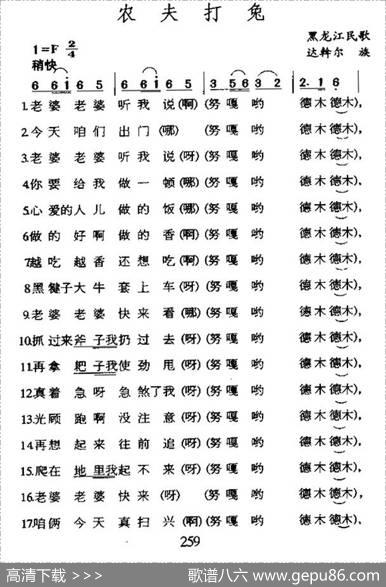 农夫打兔
1=F 2/4
稍快
黑龙江民歌
达斡尔 族
6 6i 6 5 | 6 6i 6 5 | 3 56 3 2 | 2·1 6
1.老婆 老婆 听我 说(啊)(努嘎 哟 德木德木),
2.今天 咱们 出门(哪) (努嘎 哟 德木德木),
3.老婆 老婆 听我 说(呀)(努嘎 哟 德木德木),
4.你要 给我 做一 顿(哪)(努嘎 哟 德木德木),
5.心爱的人儿 做的 饭(哪)(努嘎 哟 德木德木),
6.做的 好啊 做的 香(啊)(努嘎 哟 德木德木),
7.越吃 越香 还想 吃(啊)(努嘎 哟 德木德木),
8.黑犍子大牛 套上 车(呀)(努嘎 哟 德木德木),
9.老婆 老婆 快来 看(哪)(努嘎 哟 德木德木),
10.抓过来斧子我扔过 去(呀)(努嘎 哟 德木德木),
11.再拿 耙子我使劲 甩(呀)(努嘎 哟 德木德木),
12.真着 急呀 急煞了我(呀)(努嘎 哟 德木德木),
13.光顾 跑啊 没注 意(呀)(努嘎 哟 德木德木),
14.再想 起来 往前 追(呀)(努嘎 哟 德木德木),
15.爬在 地里我起不 来(呀)(努嘎 哟 德木德木),
16.老婆 老婆 快来 (呀) (努嘎 哟 德木德木),
17.咱俩 今天 真扫 兴(啊)(努嘎 哟 德木德木).
259
高清下载 >>>> 歌谱八六 www.gepu86.com